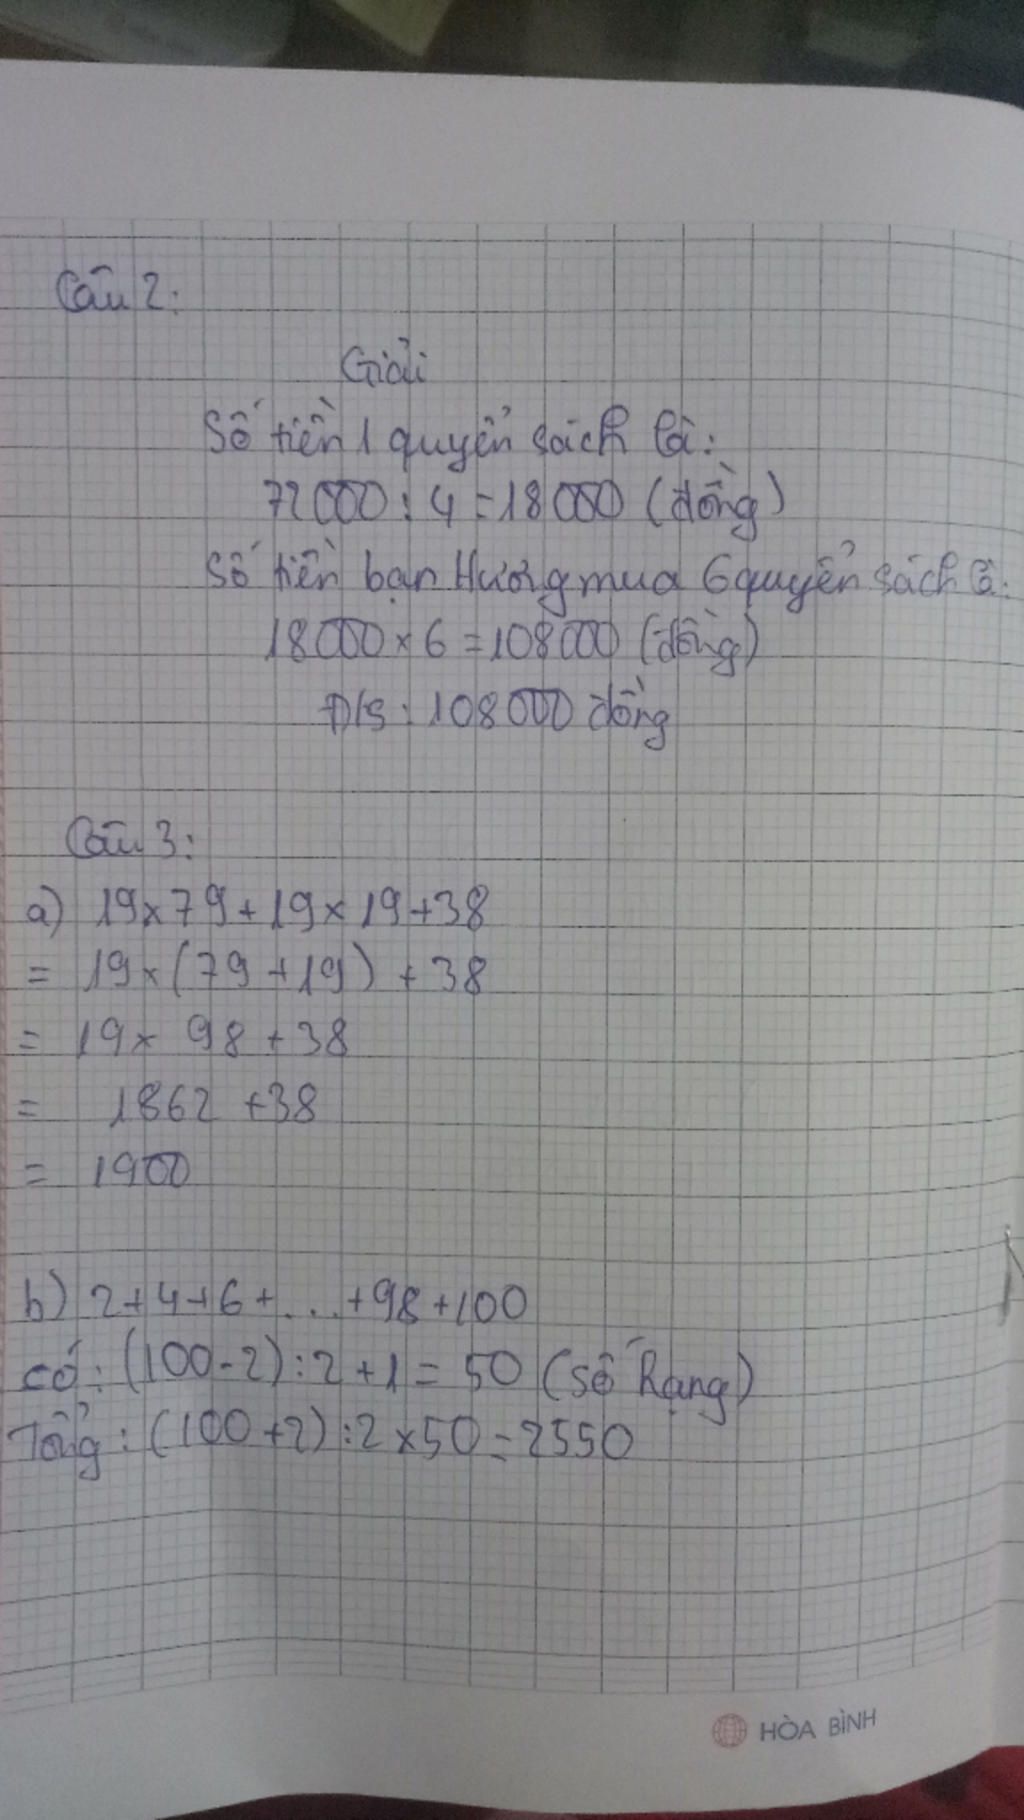 Câu 2:
Giải
Số tiền 1 quyển sách là:
72000 : 4 = 18000 (đồng)
Số tiền bạn Hương mua 6 quyển sách là:
18000 × 6 = 108000 (đồng)
Đ/S : 108000 đồng
Câu 3:
a) 19 × 79 + 19 × 19 + 38
= 19 × (79 + 19) + 38
= 19 × 98 + 38
= 1862 + 38
= 1900
b) 2 + 4 + 6 + ... + 98 + 100
có : (100 - 2) : 2 + 1 = 50 (số hạng)
Tổng : (100 + 2) : 2 × 50 = 2550
HÒA BÌNH